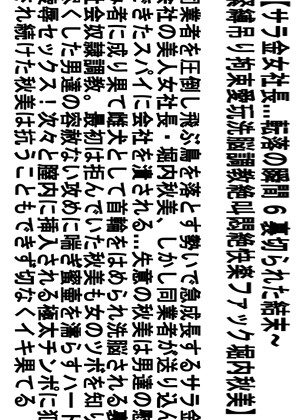 【サラ金女社長…転落の瞬間 6 裏切られた結末～
緊縛吊り拘束愛玩洗脳調教絶叫悶絶快楽ファック堀内秋美】
同業者を圧倒し飛ぶ鳥を落とす勢いで急成長するサラ金
会社の美人女社長・堀内秋美、しかし同業者が送り込ん
できたスパイに会社を潰される…失意の秋美は男達の慰
み者に成り果て雌犬として首輪をはめられ洗脳される裏
社会奴隷調教。最初は拒んでいた秋美も女のツボを知り
尽くした男達の容赦ない攻めに喘ぎ蜜壷を濡らすハード
凌辱セックス！次々と膣内に挿入される極太チンポに犯
され続けた秋美は抗うこともできず切なくイキ果てる